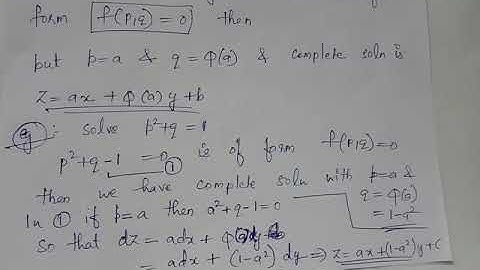 form f(p,q) = 0 then
put p=a & q = φ(a) & complete soln is
z = ax + φ(a)y + b
eg: solve p²+q = 1
p²+q-1 = 0 ① is of form f(p,q)=0
then we have complete soln with p=a &
q = φ(a)
= 1-a²
In ① if p=a then a²+q-1=0
so that dz = adx + φ(a)dy
= adx + (1-a²) dy ⇒ z = ax+(1-a²)y+c